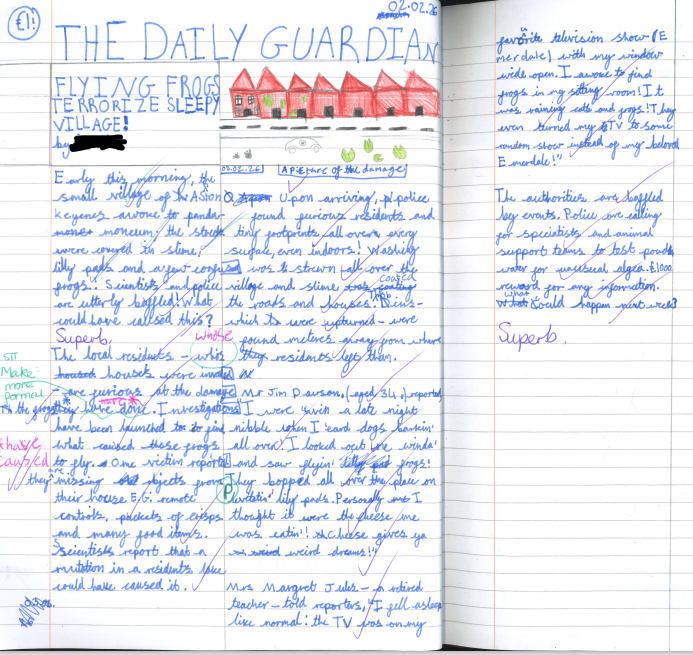 £1!
02.02.26
THE DAILY GUARDIAN
FLYING FROGS
TERRORIZE SLEEPY
VILLAGE!
by
02.02.26
A picture of the damage
Early this morning, the
small village of Aston
Keyenes awoke to panda-
moneum: the streets
were covered in slime,
lilly pads and a few confused
frogs. Scientists and police
are utterly baffled! What
could have caused this?
Superb.
The local residents – whose
houses were
– are furious at the damage
the frogs have done. Investigations
have been launched to find
what caused these frogs
to fly. One victim reported
missing objects from
their house E.G. remote
controls, packets of crisps
and many food items.
Scientists report that a
mutation in a residents lake
could have caused it.
SIT
Make
more
formal
*have
caused
Upon arriving, police
found furious residents and
tiny footprints all over every
surface, even indoors! Washing
was strewn all over the
village and slime coated
the roads and houses. Bins –
which were upturned – were
found meters away from where
residents left them.
Mr Jim Derson, (aged 34,) reported
"I were 'avin a late night
nibble when I 'eard dogs barkin'
all over! I looked out me winda'
and saw flyin' frogs!
They bopped all over the place on
lily pads. Personally I
thought it were the cheese me
was eatin'! Cheese gives ya
weird dreams!"
P
Mrs Margret Jules – a retired
teacher – told reporters, "I fell asleep
like normal: the TV was on my
favorite television show (E
merdale) with my window
wide open. I awoke to find
frogs in my sitting room! It
was raining cats and frogs! They
even turned my TV to some
random show instead of my beloved
Emerdale!"
The authorities are baffled
by events. Police are calling
for specialists and animal
support teams to test pond
water for unusual algea. £1000
reward for any information.
What could happen next week?
Superb.